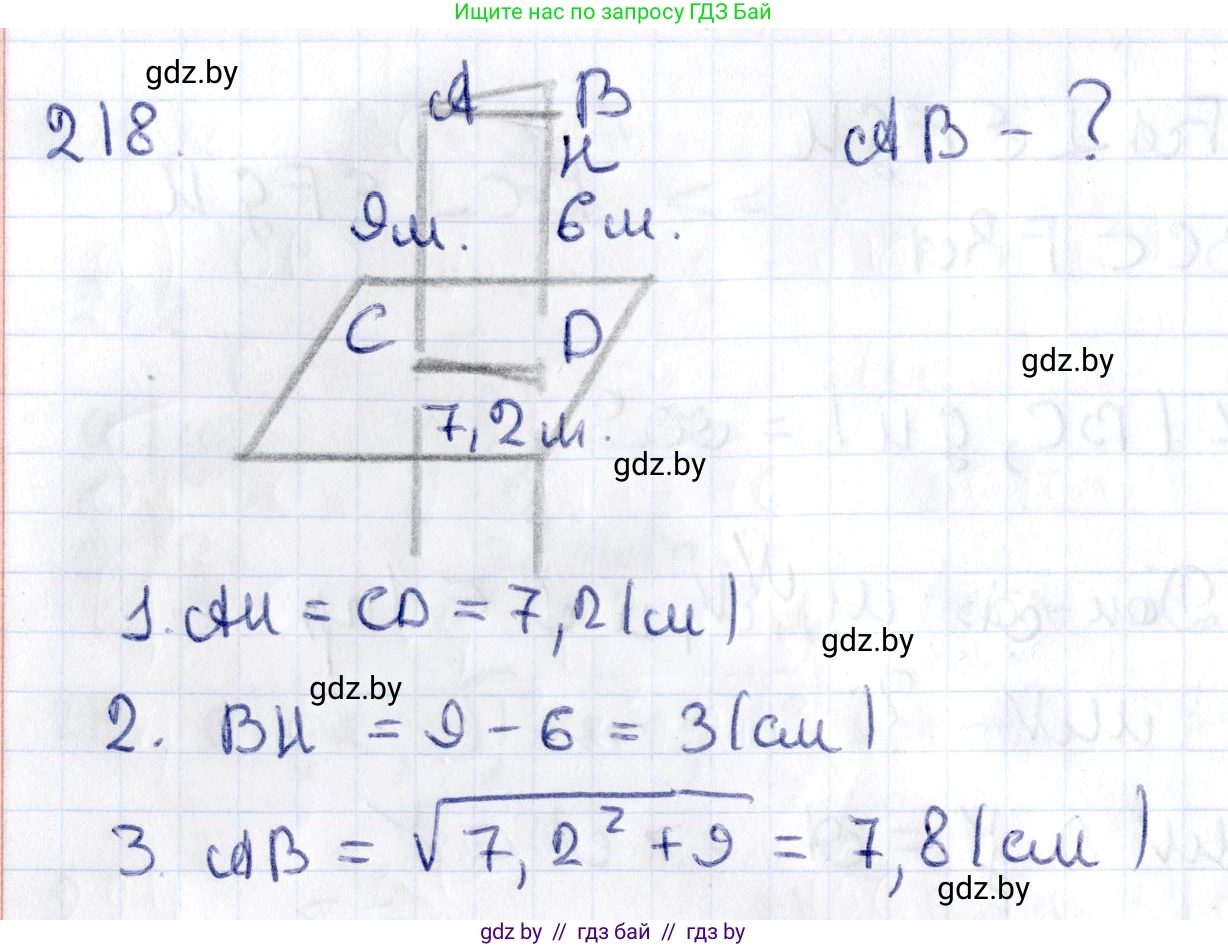 Ищите нас по запросу ГДЗ Бай
gdz.by
218.
A
B
H
AB - ?
9м.
6м.
C
D
gdz.by
7,2м.
gdz.by
1. AH = CD = 7,2 (см)
gdz.by
gdz.by
2. BH = 9 - 6 = 3 (см)
3. AB = √7,2² + 9 = 7,8 (см)
gdz.by
gdz.by // гдз бай // гдз by